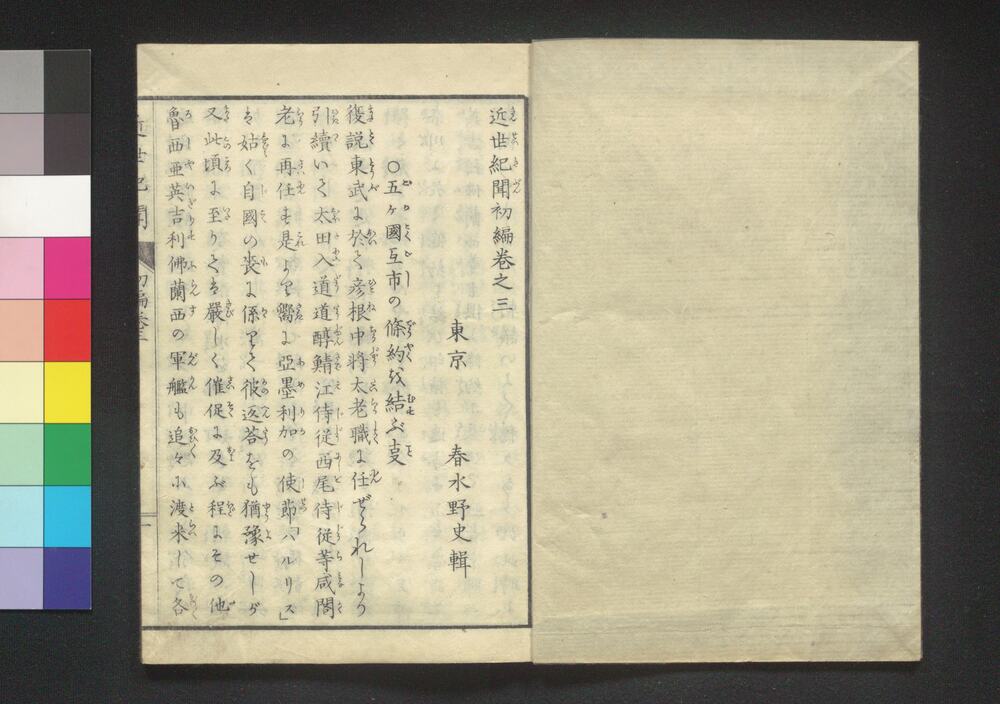 近世紀聞初編巻之三
東京 春水野史輯
○五ヶ國互市の條約を結ぶ事
後説東武に於て彦根中将太老職に任ぜられしより
引續いて太田入道道醇鯖江侍従西尾侍従等咸閣
老に再任す是より嚮に亞墨利加の使節「ハルリス」
は姑く自國の喪に係りて彼返荅をも猶豫せしが
又此頃に至りては嚴しく催促に及ぶ程にその他
魯西亜英吉利佛蘭西の軍艦も追々に渡来して各
近世紀聞 初編巻三
一